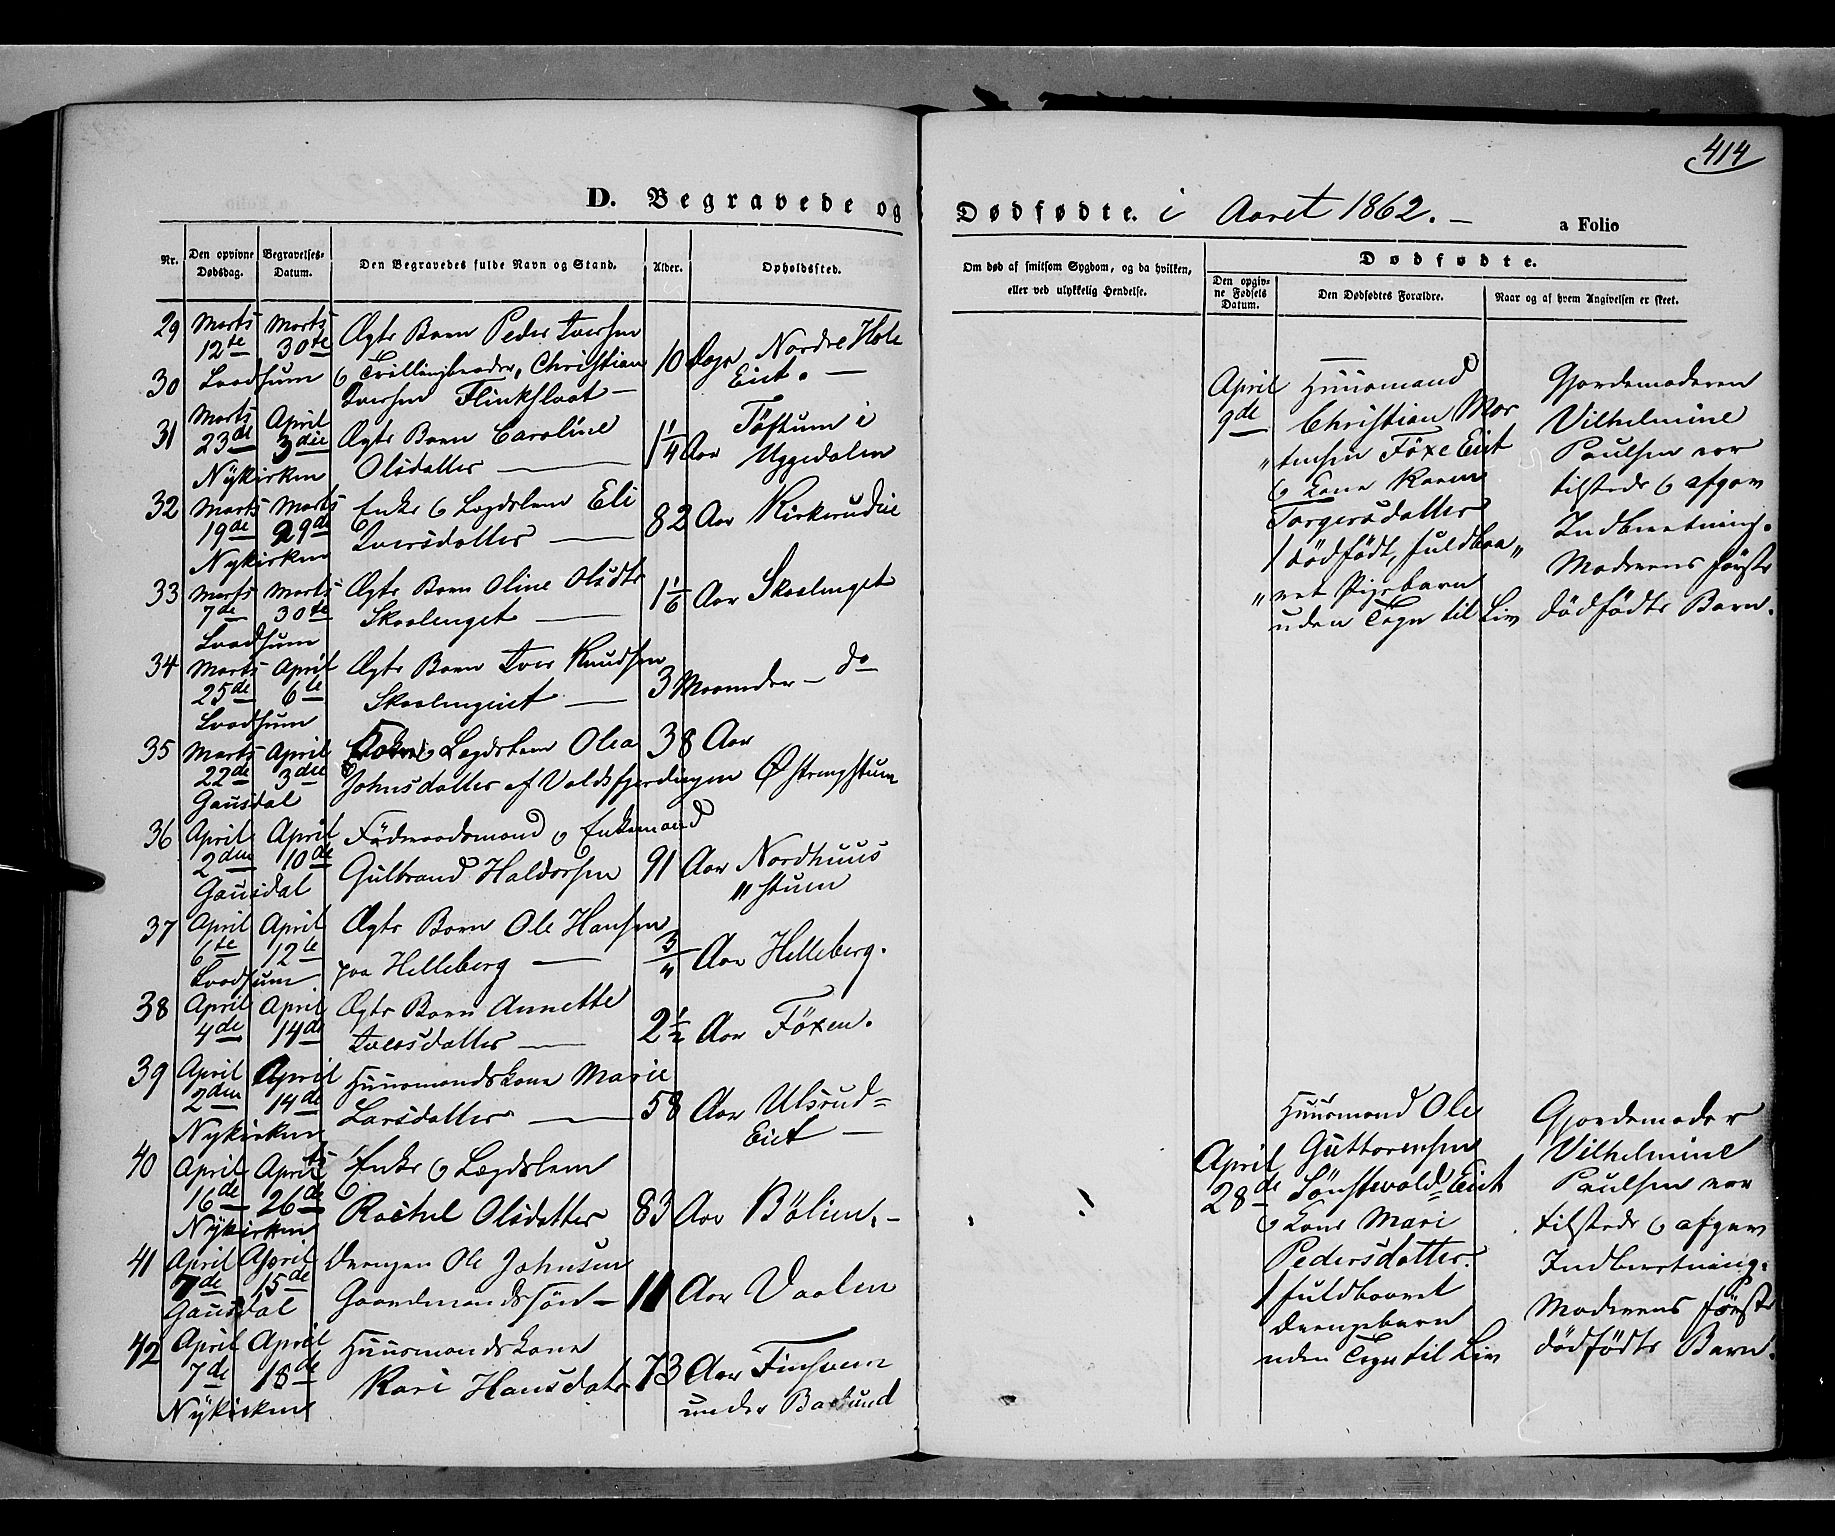 414
D. Begravede og Dødfødte. i Aaret 1862. —
a Folio
Nr.
Den opgivne Dødsdag.
Begravelses-Datum.
Den Begravedes fulde Navn og Stand.
Alder.
Opholdssted.
Om død af smitsom Sygdom, og da hvilken,
eller ved ulykkelig Hendelse.
Dødfødte.
Den opgiv-
ne Fødsels
Datum.
Den Dødfødtes Forældre.
Naar og af hvem Angivelsen er skeet.
29 Marts Marts Ægte Barn Peder Iversen
12te 30te
30 Svadsum & Tvillingbroder, Christian 10 Dage Nordre Hole
Iversen Flinkslaat — Eiet. —
31 Marts April Ægte Barn Caroline 1 1/4 Aar Töstum i
23de 3die Olsdatter — Uggedalen
Nykirken
32 Marts Marts Enke & Lægdslem Eli 82 Aar Kirkerudie
19de 29de Iversdatter —
Nykirken
33 Marts Marts Ægte Barn Oline Olsdtr 1 1/6 Aar Skaalenget
7de 30te Skaalenget —
Svadsum
34 Marts April Ægte Barn Iver Knudsen 3 Maaneder — do
25de 6te Skaalengiet —
Svadsum
35 Marts April Lægdslem Olea 38 Aar
22de 3die Johnsdatter af Voldsfjerdingen Østrengstuen
Gausdal
36 April April Föderaadsmand & Enkemand
2den 10de Gulbrand Haldorsen 91 Aar Nordhuus
Gausdal " stuen
37 April April Ægte Barn Ole Hansen 3/4 Aar Helleberg.
6te 12te paa Helleberg —
Svadsum
38 April April Ægte Barn Annette 2 1/2 Aar Föxen.
4de 14de Iversdatter —
39 April April Huusmandskone Marie 58 Aar Ulsrud=
2den 14de Larsdatter — Eiet —
Nykirken
40 April April Enke & Lægdslem
16de 26de Rachel Olsdatter 83 Aar Bölien. —
Nykirken
41 April April Drengen Ole Johnsen
7de 15de Gaardmandssön — 11 Aar Vaalen
Gausdal
42 April April Huusmandskone
7de 18de Kari Hansdatr 73 Aar Finsveen
Nykirken under Baklund
April Huusmand Gjordemoderen
9de Christian Mor Vilhelmine
" tensen Föxe Eiet Paulsen var
& Kone Karen tilstede & afgav
Torgersdatter Indberetning.
1 dödfödt, fuldbaa„ Moderens förste
" ret Pigebarn dödfödte Barn.
uden Tegn til Liv
Huusmand Ole Gjordemoder
April Guttormsen Vilhelmine
28de Sönstevold= Eiet Paulsen var
& Kone Mari tilstede & afgav
Pedersdatter. Indberetning.
1 fuldbaaret Moderens förste
Drengebarn dödfödte Barn.
uden Tegn til Liv